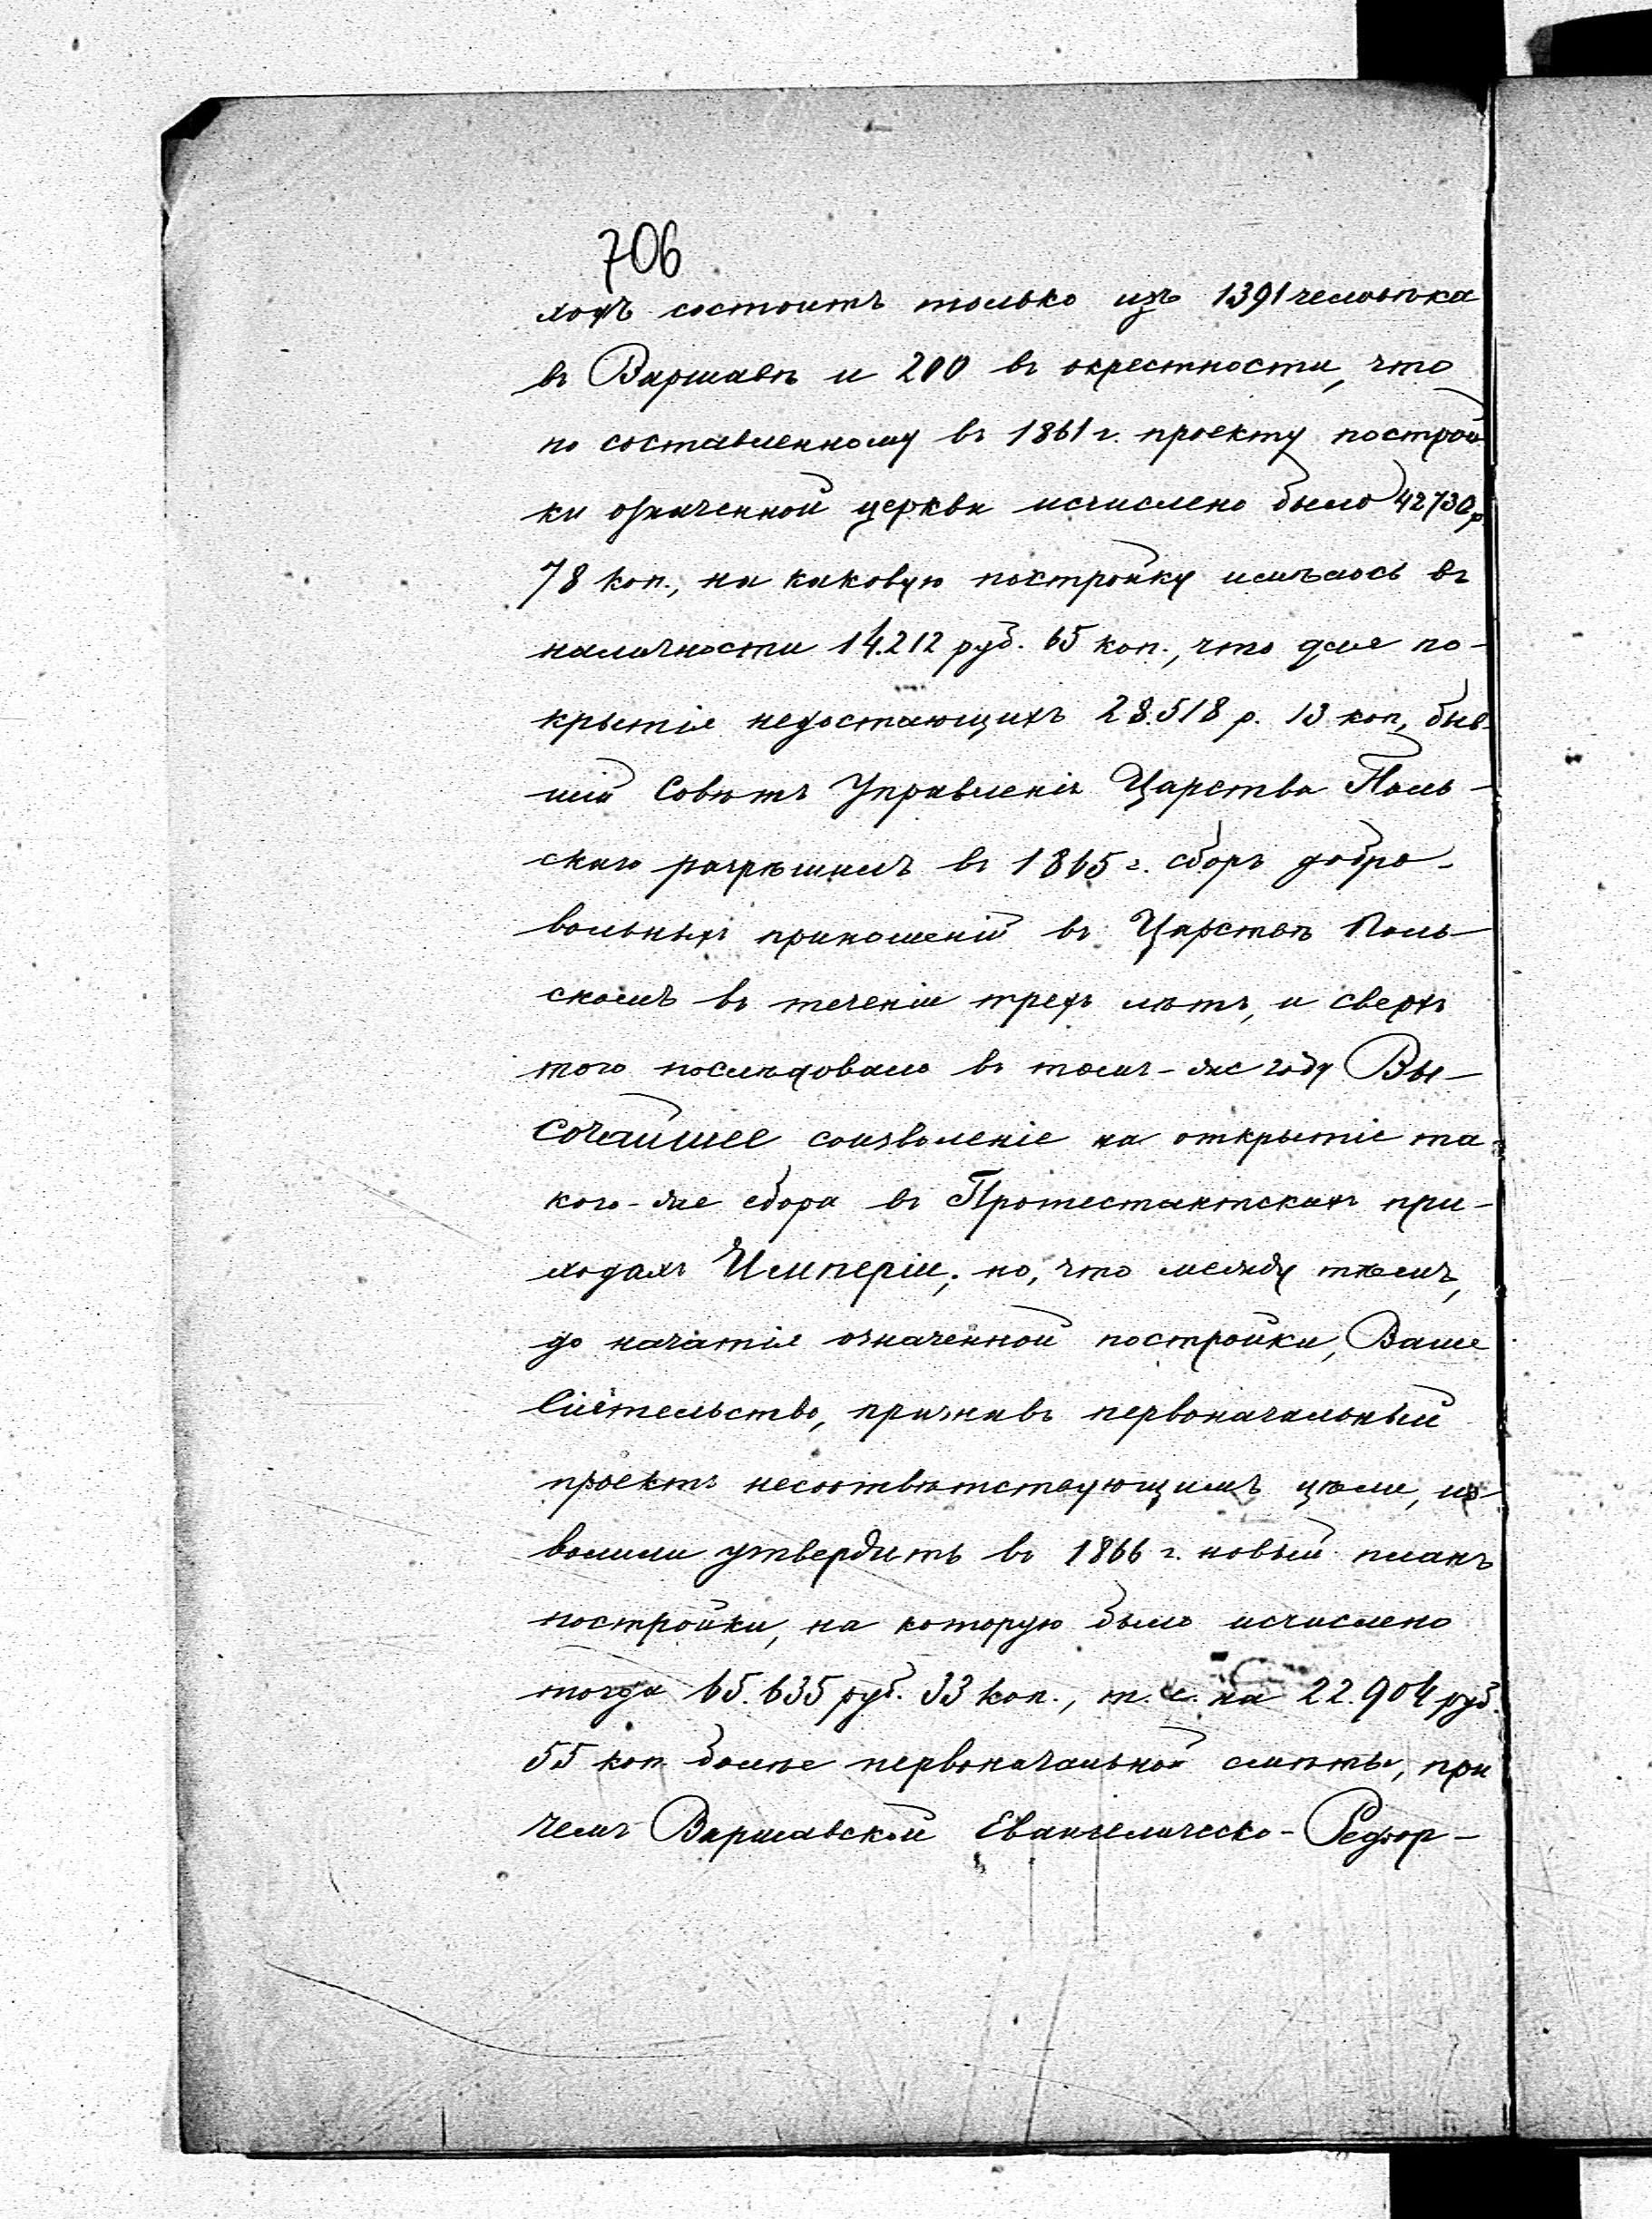 706
ходъ состоитъ только изъ 1391 человѣка
въ Варшавѣ и 200 въ окрестности, что
по составленному въ 1861 г. проекту построй
ки означенной церкви исчислено было 42730 р.
78 коп., на каковую постройку имѣлось въ
наличности 14.212 руб. 65 коп., что для по-
крытія недостающихъ 28.518 р. 13 коп, быв-
шій Совѣтъ Управленія Царства Поль-
скаго разрѣшилъ въ 1865 г. сборъ добро-
вольныхъ приношеній въ Царствѣ Поль-
скомъ въ теченіи трехъ лѣтъ, и сверхъ
того послѣдовало въ томъ-же году Вы-
сочайшее соизволеніе на открытіе та-
кого-же сбора въ Протестантскихъ при-
ходахъ Имперіи; но, что между тѣмъ,
до начатія означенной постройки, Ваше
Сіятельство, признавъ первоначальный
проектъ несоотвѣтствующимъ цѣли, из-
волили утвердить въ 1866 г. новый планъ
постройки, на которую было исчислено
тогда 65.635 руб. 33 коп., т. е. на 22.904 руб.
55 коп. болѣе первоначальной смѣты, при
чемъ Варшавской Евангелическо-Рефор-